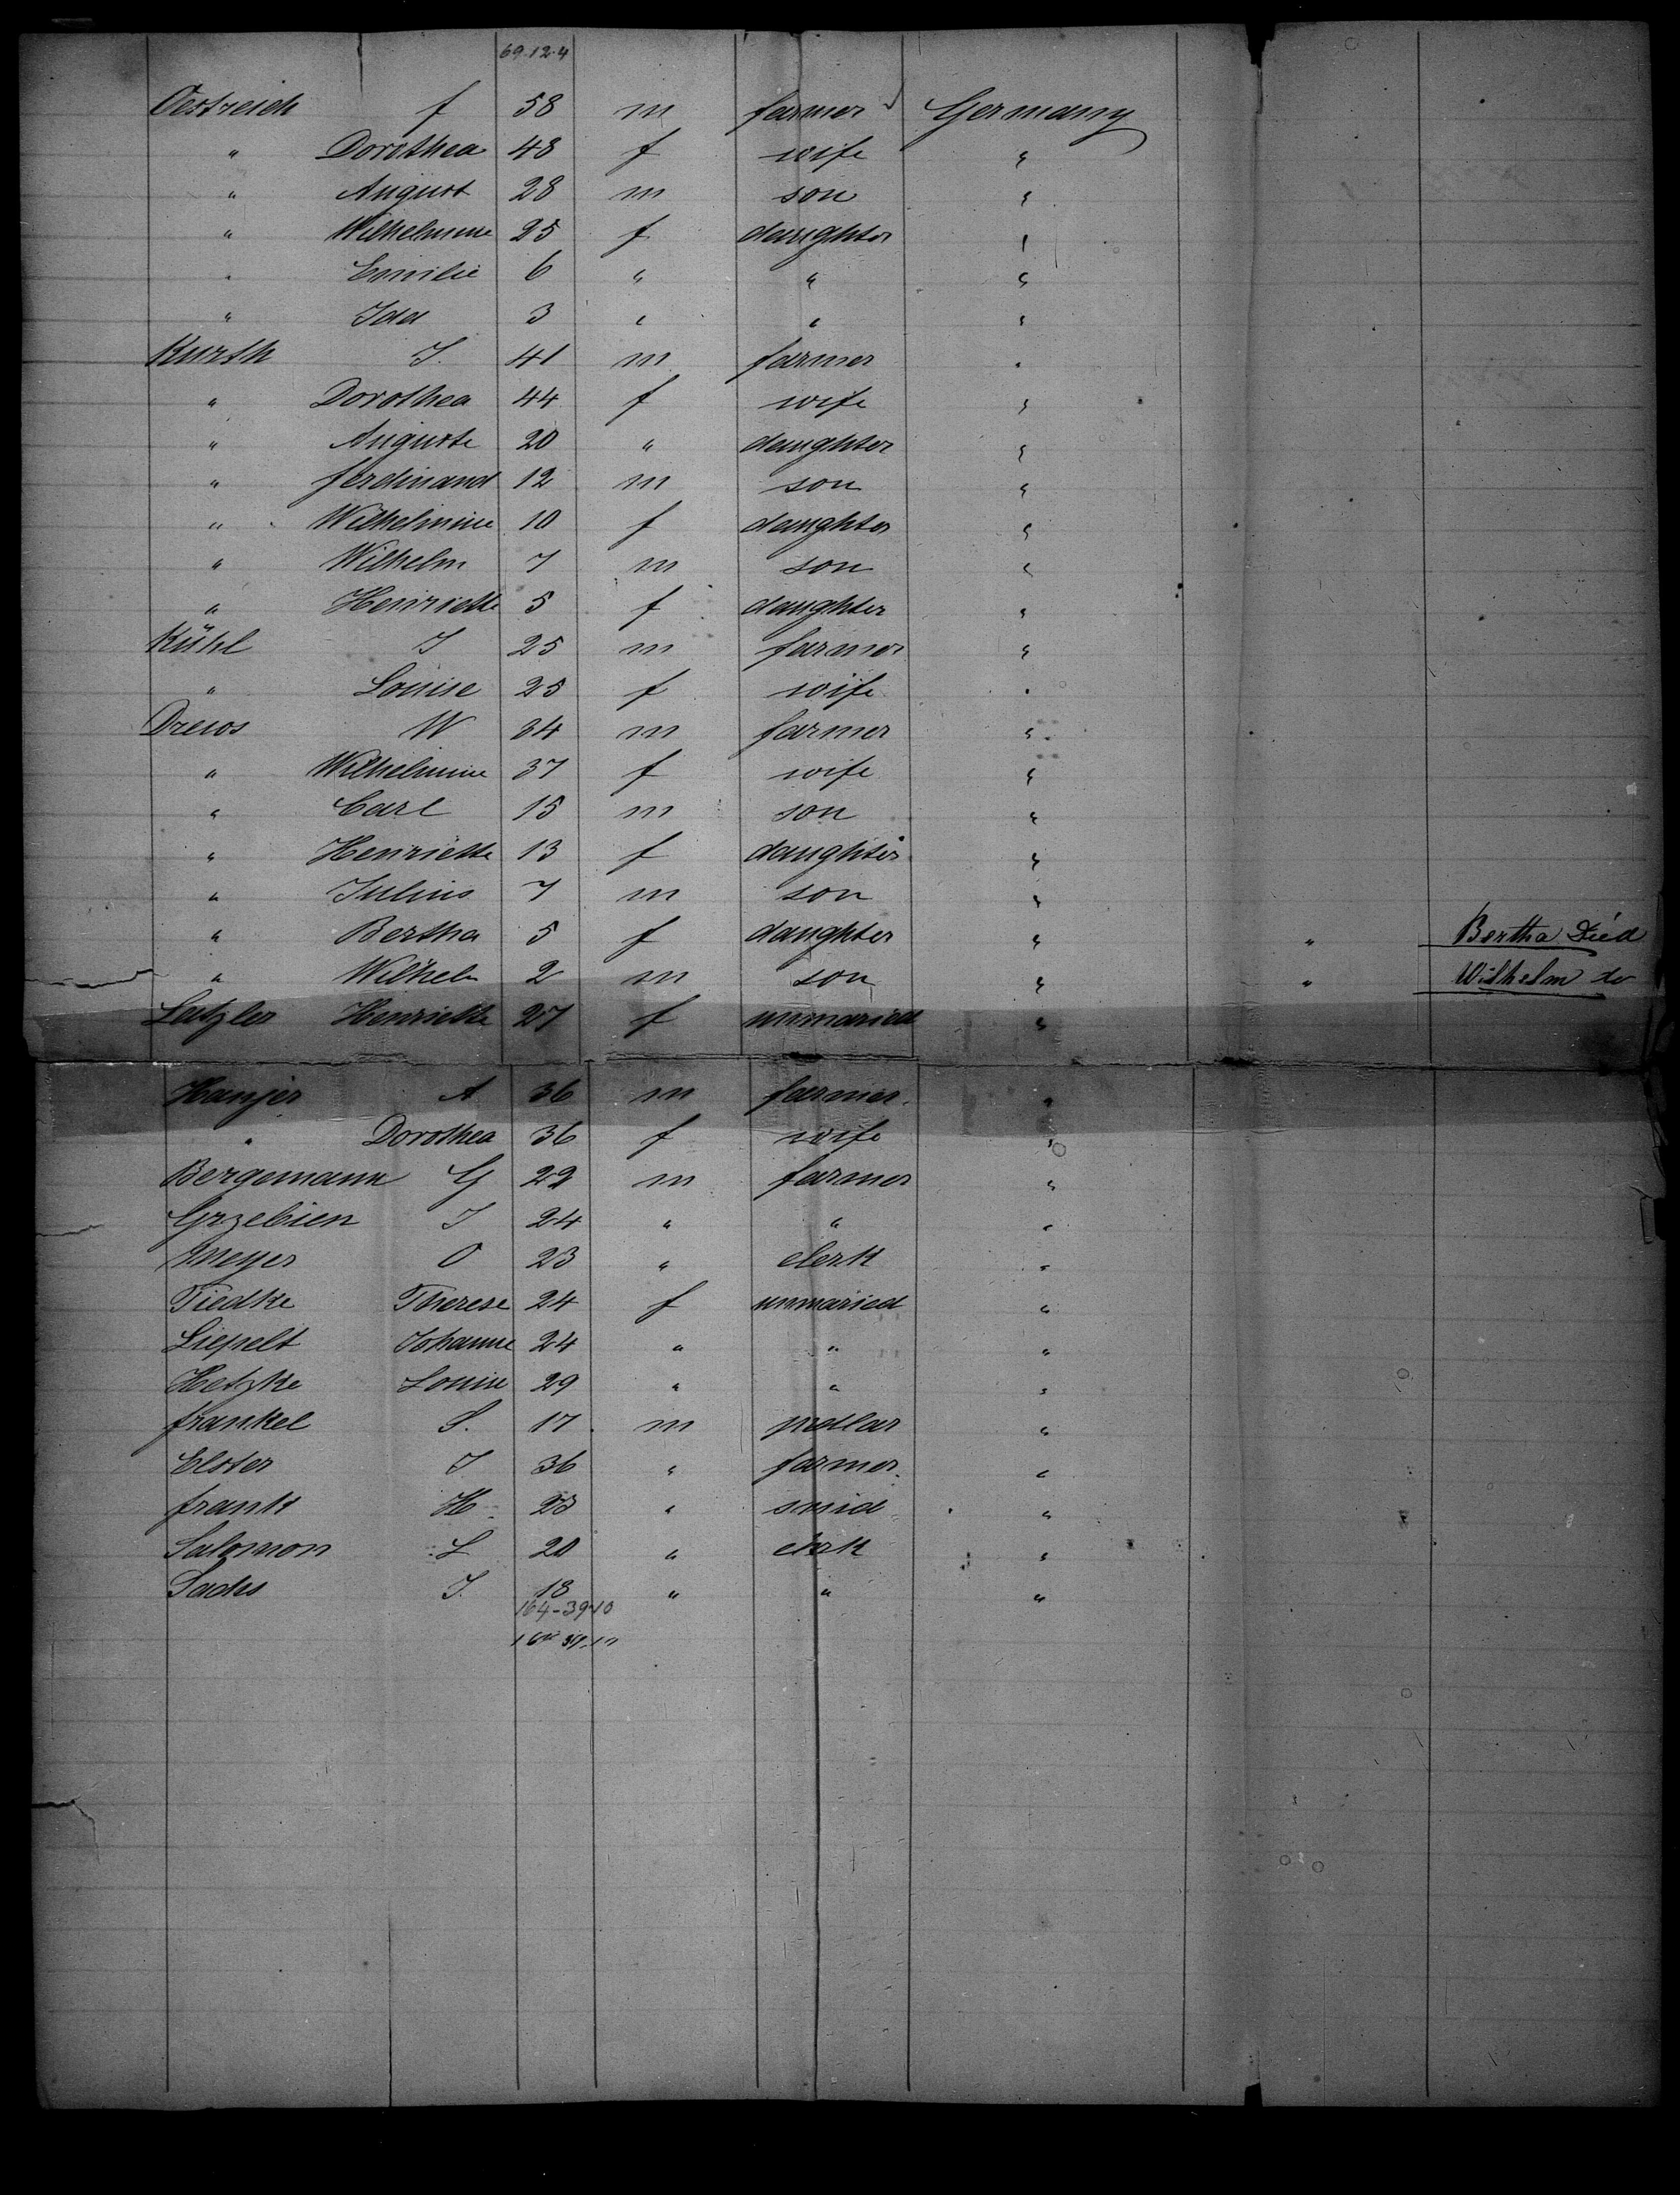 69.12.4
Oestreich f 58 m farmer Germany
" Dorothea 48 f wife "
" August 28 m son "
" Wilhelmine 25 f daughter "
" Emilie 6 " " "
" Ida 3 " " "
Kurth J. 41 m farmer "
" Dorothea 44 f wife "
" Auguste 20 " daughter "
" ferdinand 12 m son "
" Wilhelmine 10 f daughter "
" Wilhelm 7 m son "
" Henriette 5 f daughter "
Kühl J 25 m farmer "
" Louise 25 f wife "
Drews W 34 m farmer "
" Wilhelmine 37 f wife "
" Carl 15 m son "
" Henriette 13 f daughter "
" Julius 7 m son "
" Bertha 5 f daughter " " Bertha Died
" Wilhelm 2 m son " " Wilhelm do
Latzler Henriette 27 f unmaried "
Hanjer A 36 m farmer. "
" Dorothea 36 f wife "
Bergemann G 22 m farmer "
Grzebien J 24 " " "
Meyer O 23 " clerk "
Tiedke Therese 24 f unmaried "
Liepelt Johanne 24 " " "
Hetzke Louise 29 " " "
frankel S. 17 m pedlar "
Elster J 36 " farmer. "
frank H. " smid "
Salomon L 20 " clerk "
Sachs J. 18 " " "
164-39-10